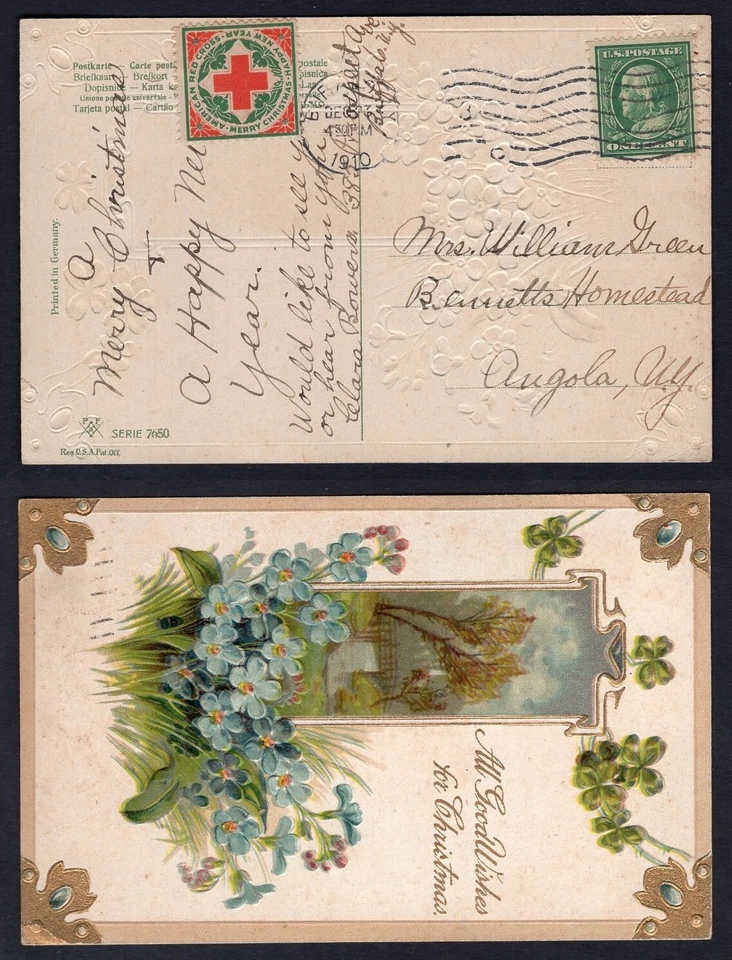 Postkarte Carte post
Briefkaart Brefkort
Dopisnice Karta k
Unione postale universale
Tarjeta postal Cartão
postale
AMERICAN RED CROSS
HAPPY NEW YEAR
MERRY CHRISTMAS
DEC
4 30 PM
1910
U.S. POSTAGE
ONE CENT
Printed in Germany.
A
Merry Christmas
+
A Happy New
Year.
Would like to see
or hear from you
Clara Bowers
382 Prospect Ave
Buffalo. N.Y.
Mrs. William Green
Bennetts Homestead
Angola, N.Y.
SERIE 7650
Reg.U.S.A.Pat.Off.
All Good Wishes
for Christmas.